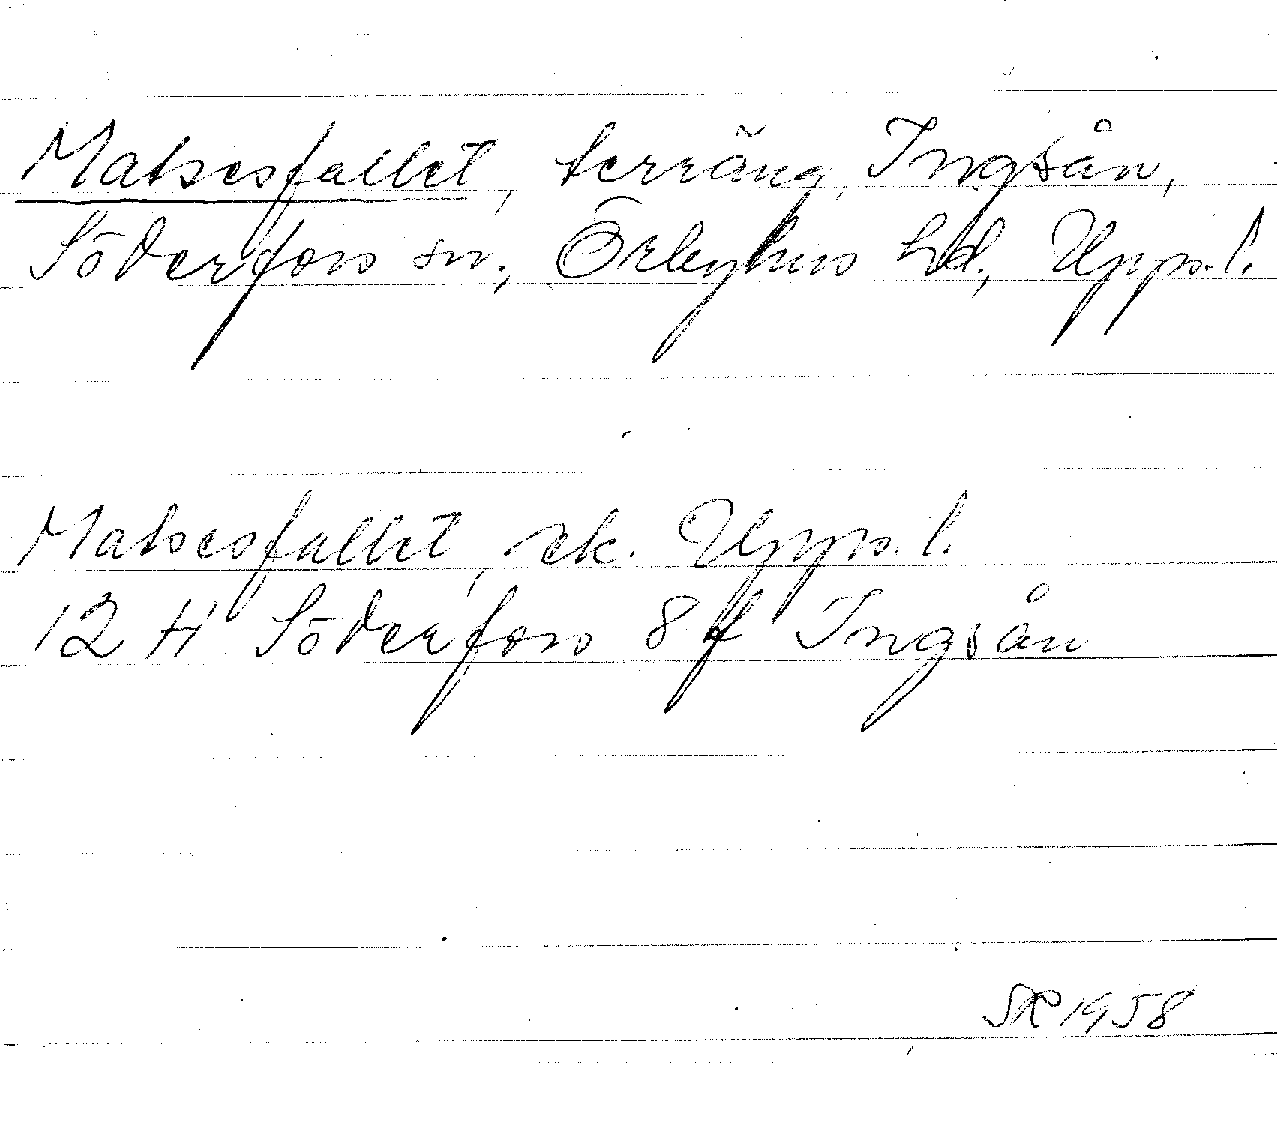 Matsesfallet, terräng, Ingsån,
Söderfors sn., Örbyhus hd., Upps.l.
Matsesfallet, ek. Upps.l.
12 H Söderfors 8f Ingsån
SR 1958